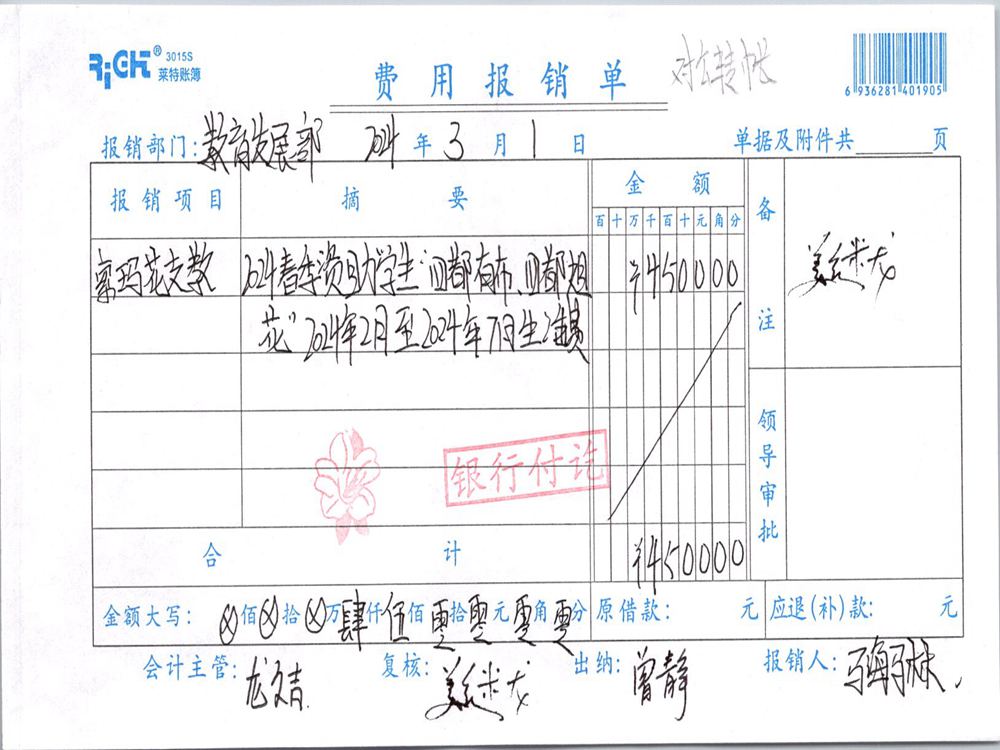 RiCH® 3015S
莱特账簿
费用报销单
对公转帐
6 936281 401905
报销部门: 教育发展部 2024 年 3 月 1 日
单据及附件共 页
报销项目 摘要 金额 备注
百 十 万 千 百 十 元 角 分
索玛花支教 2024春季资助大学生"回都有市、回都想 ¥450000
花"2024年2月至2024年7月生活费
领导审批
银行付讫
合计 ¥450000
金额大写: ⊗佰⊗拾⊗万肆仟伍佰零拾零元零角零分 原借款: 元 应退(补)款: 元
会计主管: 龙文吉 复核: 出纳: 曾静 报销人: 马海马林